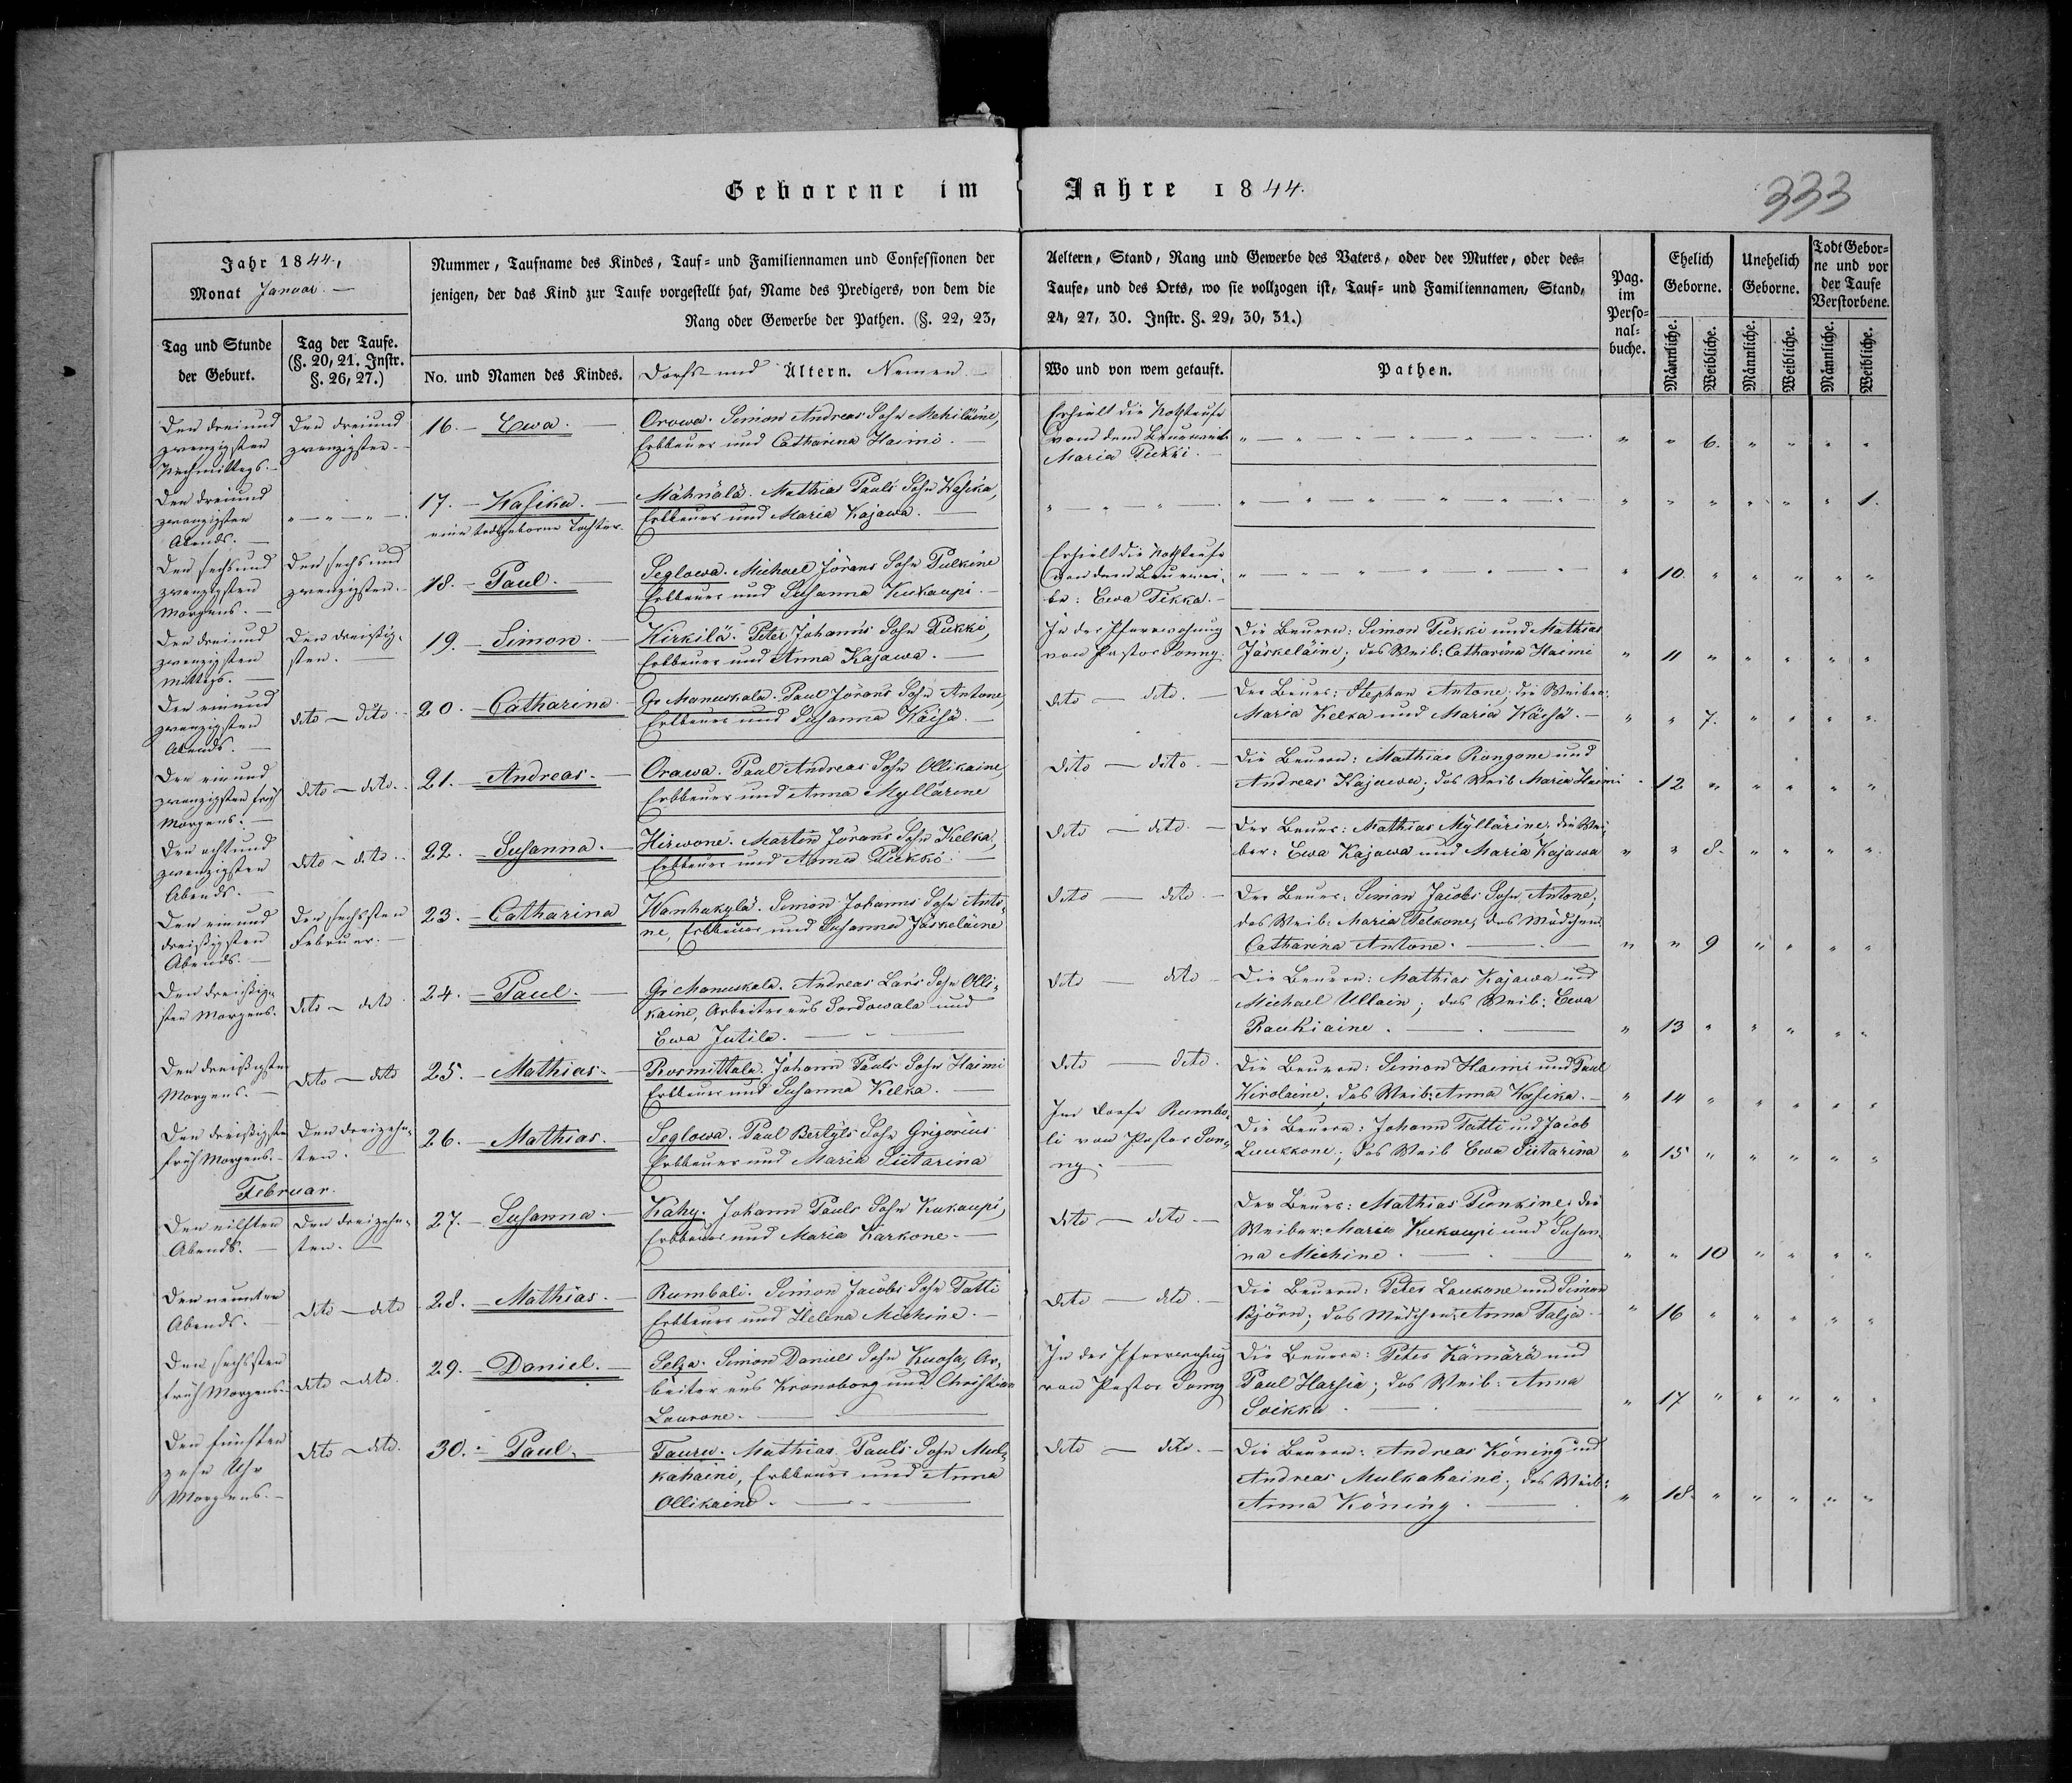 Geborene im Jahre 1844.
333
Jahr 1844,
Monat Januar. —
Tag und Stunde
der Geburt.
Tag der Taufe.
(§. 20, 21. Instr.
§. 26, 27.)
Nummer, Taufname des Kindes, Tauf- und Familiennamen und Confessionen der
jenigen, der das Kind zur Taufe vorgestellt hat, Name des Predigers, von dem die
Rang oder Gewerbe der Pathen. (§. 22, 23,
No. und Namen des Kindes.
Dorfs- und Ältern. Namen
Aeltern, Stand, Rang und Gewerbe des Vaters, oder der Mutter, oder des-
Taufe, und des Orts, wo sie vollzogen ist, Tauf- und Familiennamen, Stand,
24, 27, 30. Instr. §. 29, 30, 31.)
Wo und von wem getauft.
Pathen.
Pag.
im
Perso-
nal-
buche.
Ehelich
Geborne.
Unehelich
Geborne.
Todt Gebor-
ne und vor
der Taufe
Verstorbene.
Männliche.
Weibliche.
Männliche.
Weibliche.
Männliche.
Weibliche.
Den drei und
zwanzigsten
Nachmittags. —
Den drei und
zwanzigsten. —
16. — Ewa. —
Orowa. Simon Andreas Sohn Mehiläine,
Erbbauer und Catharina Haimi. —
Erhielt die Nothtaufe
von dem Bauerweib
Maria Pukki. —
" 6. " " " "
Den drei und
zwanzigsten
Abends. —
" — " — "
17. — Wasika. —
eine todtgeborne Tochter.
Mähnälä. Mathias Pauls Sohn Wasika,
Erbbauer und Maria Kajawa. —
" " " " " 1.
Den sechs und
zwanzigsten
Morgens. —
Den sechs und
zwanzigsten. —
18. — Paul. —
Seglowa. Michael Jörans Sohn Pulkine
Erbbauer und Susanna Kukaupi. —
Erhielt die Nothtaufe
von dem Bauerwei-
be: Ewa Tikka. —
" 10. " " " " "
Den drei und
zwanzigsten
Mittags. —
Den dreißig-
sten. —
19. — Simon. —
Kirkilä. Peter Johanns Sohn Pukki,
Erbbauer und Anna Kajawa. —
In der Pfarrwohnung
von Pastor Sonny.
Die Bauern: Simon Pukki und Mathias
Jäskeläine; das Weib: Catharina Haimi
" 11 " " " " "
Den ein und
zwanzigsten
Abends. —
dito — dito.
20. — Catharina —
Gr Manuskala. Paul Jörans Sohn Antone,
Erbbauer und Susanna Käisä. —
dito — dito. —
Der Bauer: Stephan Antone; die Weiber:
Maria Kelka und Maria Käisä. —
" " 7. " " " "
Den ein und
zwanzigsten früh
Morgens. —
dito — dito.
21. — Andreas. —
Orawa. Paul Andreas Sohn Ollikaine,
Erbbauer und Anna Myllärine
dito — dito. —
Die Bauern: Mathias Rongone und
Andreas Kajawa; das Weib Maria Haimi
12 " " " " "
Den acht und
zwanzigsten
Abends. —
dito — dito.
22. — Susanna. —
Hirwone. Martin Jörans Sohn Kelka,
Erbbauer und Anna Pukki. —
dito — dito. —
Der Bauer: Mathias Myllärine; die Wei-
ber: Ewa Kajawa und Maria Kajawa
" " 8. " " " "
Den ein und
dreißigsten
Abends. —
Den sechsten
Februar. —
23. — Catharina
Wanhakylä. Simon Johanns Sohn Anto-
ne, Erbbauer und Susanna Jäskeläine
dito — dito. —
Der Bauer: Simon Jacobs Sohn Antone;
das Weib: Maria Telkone; das Mädchen:
Catharina Antone. —
" " 9 " " " "
Den dreißig-
sten Morgens.
dito — dito
24. — Paul. —
Gr Manuskala. Andreas Lars Sohn Olli-
kaine, Arbeiter aus Sordowala und
Ewa Jutila. —
dito — dito —
Die Bauern: Mathias Kajawa und
Michael Ullain; das Weib: Ewa
Raukiaine. —
" 13 " " " " "
Den dreißigsten
Morgens. —
dito — dito
25. — Mathias. —
Rosmittala. Johann Pauls Sohn Haimi
Erbbauer und Susanna Kelka. —
dito — dito.
Die Bauern: Simon Haimi und Paul
Hirolaine; das Weib: Anna Wasika. —
" 14 " " " " "
Den dreißigsten
früh Morgens. —
Den dreizehn-
ten. —
26. — Mathias.
Seglowa. Paul Bertyls Sohn Grigorius
Erbbauer und Maria Siitarina
Im Dorfe Rumbo-
li von Pastor Son-
ny. —
Die Bauern: Johann Tatti und Jacob
Luukkone; das Weib Ewa Siitarina
" 15 " " " " "
Februar.
Den eilften
Abends. —
Den dreizehn-
ten. —
27. — Susanna. —
Kahy. Johann Pauls Sohn Kukaupi,
Erbbauer und Maria Karkone. —
dito — dito. —
Der Bauer: Mathias Ponkine; die
Weiber: Maria Kukaupi und Susan-
na Michine. —
" " 10 " " " "
Den neunten
Abends. —
dito — dito
28. — Mathias. —
Rumbali. Simon Jacobs Sohn Tatti
Erbbauer und Helena Michine. —
dito — dito. —
Die Bauern: Peter Laukone und Simon
Björn; das Mädchen: Anna Talja. —
" 16 " " " " "
Den sechsten
früh Morgens.
dito — dito.
29. — Daniel. —
Selza. Simon Daniels Sohn Kuosa, Ar-
beiter aus Kronoborg und Christian
Laurone. —
In der Pfarrwohnung
von Pastor Sonny
Die Bauern: Peter Kämärä und
Paul Harsia; das Weib: Anna
Soikka. —
" 17 " " " " "
Den fünften
zehn Uhr
Morgens. —
dito — dito.
30. — Paul. —
Tauru. Mathias Pauls Sohn Mul-
kahaini, Erbbauer und Anna
Ollikaine. —
dito — dito. —
Die Bauern: Andreas Köning und
Andreas Mulkahaine; das Weib:
Anna Köning. —
" 18. " " " " "